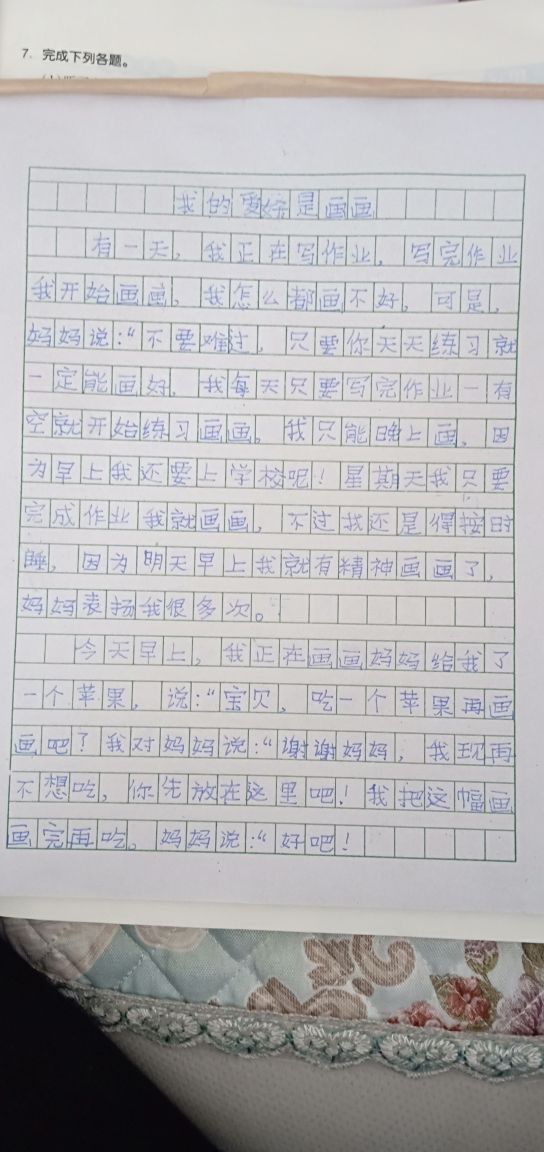 7. 完成下列各题。
我的爱好是画画
有一天，我正在写作业，写完作业
我开始画画，我怎么都画不好，可是，
妈妈说：“不要难过，只要你天天练习就
一定能画好，我每天只要写完作业一有
空就开始练习画画。我只能晚上画，因
为早上我还要上学校呢！星期天我只要
完成作业我就画画，不过我还是得按时
睡，因为明天早上我就有精神画画了，
妈妈表扬我很多次。
今天早上，我正在画画妈妈给我了
一个苹果，说：“宝贝，吃一个苹果再画
画吧？我对妈妈说：“谢谢妈妈，我现再
不想吃，你先放在这里吧！我把这幅画
画完再吃。妈妈说：“好吧！